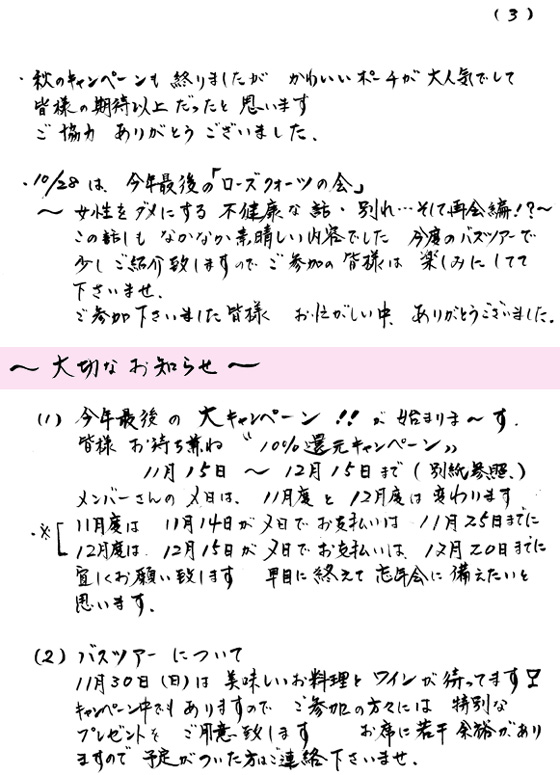 (3)
・秋のキャンペーンも 終りましたが かわいいポーチが 大人気でして
皆様の期待以上だったと 思います
ご協力 ありがとう ございました.
・10/28 は、今年最後の「ローズクォーツの会」
〜 女性をダメにする 不健康な話・別れ…そして再会編!?〜
この話しも なかなか素晴しい内容でした 今度のバスツアーで
少しご紹介致しますので ご参加の皆様は 楽しみにしてて
下さいませ.
ご参加下さいました皆様 お忙がしい中、ありがとうございました.
〜 大切な お知らせ 〜
(1) 今年最後の 大キャンペーン!! が 始まりま〜す.
皆様 お待ち兼ね “10%還元キャンペーン”
11月15日 〜 12月15日まで (別紙参照.)
メンバーさんの 〆日は、11月度と 12月度は変わります
・※[ 11月度は 11月14日が〆日で お支払いは 11月25日までに
12月度は 12月15日が〆日で お支払いは、12月20日までに
宜しくお願い致します 早目に終えて 忘年会に備えたいと
思います.
(2) バスツアー について
11月30日(日)は 美味しいお料理と ワインが待ってます
キャンペーン中でも ありますので ご参加の方々には 特別な
プレゼントを ご用意致します お席に若干 余裕があり
ますので 予定がついた方はご連絡下さいませ.